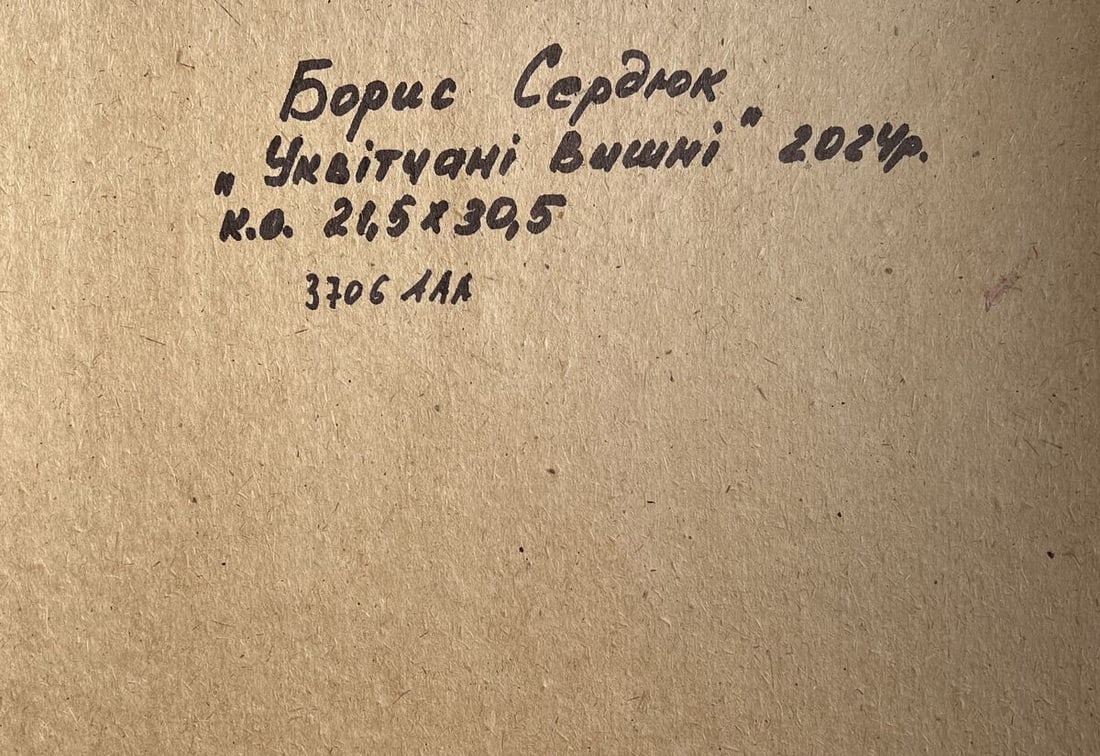 Борис Сердюк
„Уквітчані вишні" 2024р.
к.о. 21,5х30,5
3706 ААА